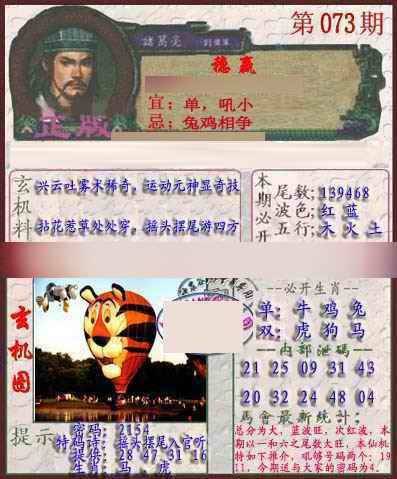 第073期
諸葛亮
穩贏
宜；单，吼小
忌；兔鸡相争
正版
玄机料
兴云吐雾术稀奇，运动元神显奇技
拈花惹草处处穿，摇头摆尾游四方
本期必开
尾数；139468
波色；红 蓝
五行；木 火 土
玄机图
--必开生肖--
单：牛 鸡 兔
双：虎 狗 马
--内部泄码--
21 25 09 31 43
20 32 24 48 04
馬會最新統計：
总分为大，蓝波旺，次红波，本
期以一和六之尾数大旺，本仙机
特如下推介，吼够号码两个：19
11，今期送与大家的密码为4．
提示
密码：2154
特码诗：摇头摆尾入官听
提供：28 47 31 16
生肖：马，虎